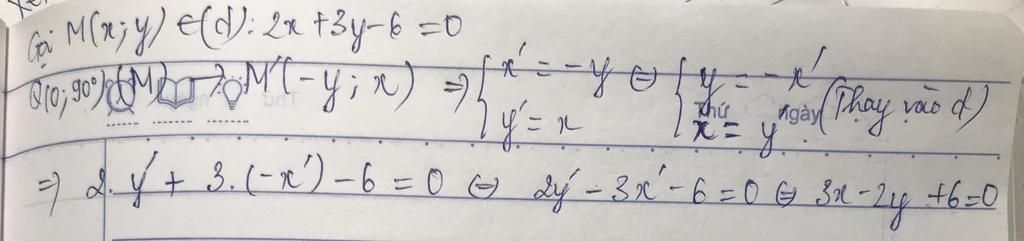 Gọi M(x; y) ∈ (d): 2x + 3y - 6 = 0
Q(0; 90°) (M) → M'(-y; x) ⇒ { x' = -y ⇔ { y = -x'
y' = x x = y' (Thay vào d)
Thứ ngày
⇒ 2. y' + 3. (-x') - 6 = 0 ⇔ 2y' - 3x' - 6 = 0 ⇔ 3x - 2y + 6 = 0